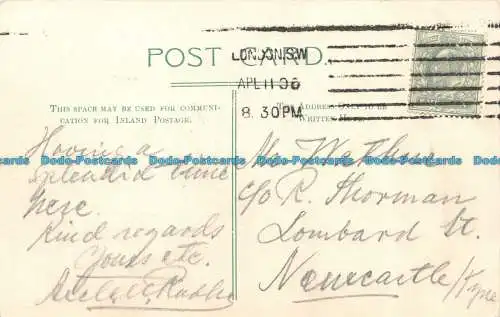 POST CARD.
LONDON.S.W
APL 11 06
8.30PM
THIS SPACE MAY BE USED FOR COMMUNI-
CATION FOR INLAND POSTAGE.
THE ADDRESS ONLY TO BE
WRITTEN HERE.
Having a
splendid time
here.
Kind regards
Yours etc.
Mr
c/o R. Thorman
Lombard St.
Newcastle/Tyne
Dodo-Postcards Dodo-Postcards Dodo-Postcards Dodo-Postcards Dodo-Postcards